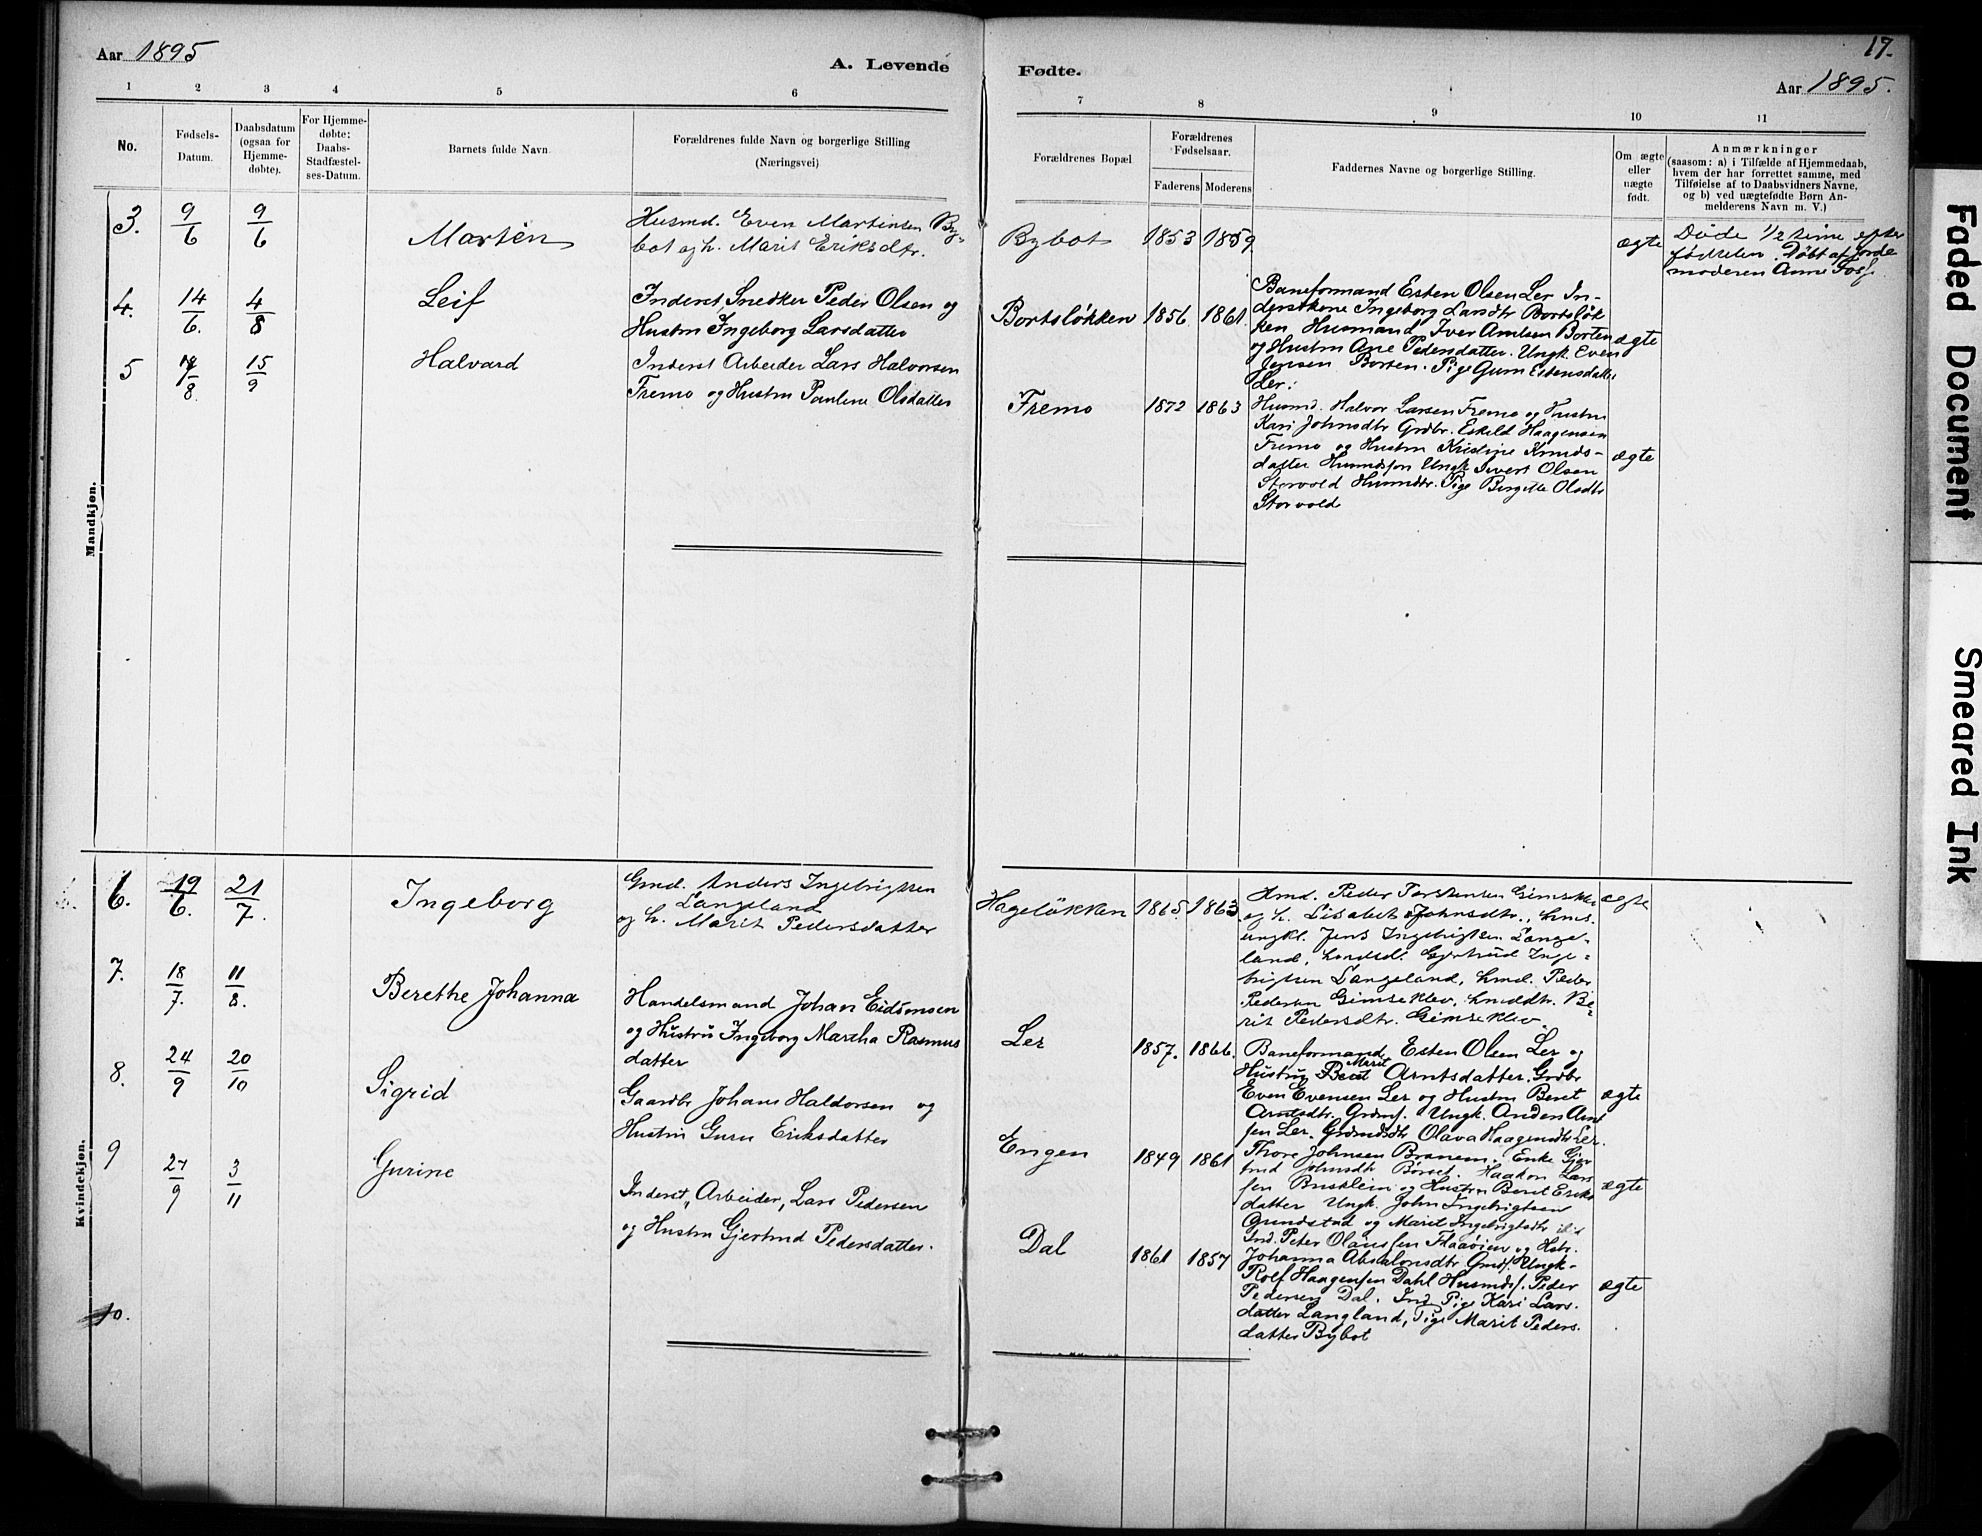 Aar 1895
A. Levende
Fødte.
17.
Aar 1895.
1 2 3 4 5 6
7 8 9 10 11
No.
Fødsels-
Datum.
Daabsdatum
(ogsaa for
Hjemme-
døbte).
For Hjemme-
døbte:
Daabs-
Stadfæstel-
ses-Datum.
Barnets fulde Navn
Forældrenes fulde Navn og borgerlige Stilling
(Næringsvei)
Forældrenes Bopæl
Forældrenes
Fødselsaar.
Faderens Moderens
Faddernes Navne og borgerlige Stilling.
Om ægte
eller
uægte
født.
Anmærkninger
(saasom: a) i Tilfælde af Hjemmedaab,
hvem der har forrettet samme, med
Tilføielse af to Daabsvidners Navne,
og b) ved uægtefødte Børn An-
melderens Navn m. V.)
Mandkjøn.
3. 9/6 9/6
Martin
Husmd. Even Martinsen By-
bot og h. Marit Eriksdtr.
Bybot 1853 1859
ægte
Døde 1/2 time efter
fødselen. Døbt af Jorde
moderen Anne Foss
4. 14/6. 4/8
Leif
Inderst Snedker Peder Olsen og
Hustru Ingeborg Larsdatter
Bortsløkken 1856 1861
Baneformand Esten Olsen Ler In-
derstkone Ingeborg Larsdtr Bortsløk
ken Husmand Iver Arntsen Borten
og Hustru Ane Pedersdatter. Ungk Even
Jensen Borten. Pige Guru Estensdatter
Ler.
ægte
5 /8. 15/9
Halvard
Inderst Arbeider Lars Halvorsen
Fremo og Hustru Pauline Olsdatter
Fremo 1872 1863
Husmd. Halvor Larsen Fremo og Hustru
Kari Johnsdtr Grdbr. Eskild Haagensen
Fremo og Hustru Kristine Knuds-
datter Husmdssøn Ungk Sivert Olsen
Storvold Husmdtr. Pige Birgitte Olsdtr
Storvold
ægte
Kvindekjøn.
6. 19/6. 21/7.
Ingeborg
Gmd. Anders Ingebrigtsen
Langeland
og h. Marit Pedersdatter
Hageløkken 1865. 1863
Hmd. Peder Torstensen Gimseklev
og h. Lisabet Johnsdtr., hms.
ungkl. Jens Ingebrigtsen Lange-
land, Gjertrud Inge-
brigtsen Langeland, hmd. Peder
Pedersen Gimseklev, hmddtr. Be-
rit Pedersdtr. Gimseklev.
ægte
7. 18/7. 11/8.
Berethe Johanna
Handelsmand Johan Eidsmosen
og Hustru Ingeborg Martha Rasmus
datter
Ler 1857. 1866.
Baneformand Esten Olsen Ler og
Marit
Hustru Beret Arntsdatter. Grdbr
Even Evensen Ler og Hustru Beret
Arntsdtr. Grdms. Ungk. Anders Arnt
sen Ler. Grdmdsdtr Olava Haagensdtr Ler.
ægte
8. 24/9 20/10
Sigrid
Gaardbr Johan Haldorsen og
Hustru Guru Eriksdatter
Engen 1849 1861
Thore Johnsen Branem. Enke Gjer
trud Johnsdtr Børset. Haakon Lars
sen Busklein og Hustru Beret Eriks
datter Ungk. John Ingebrigtsen
Grindstad og Marit Ingebrigtsdtr
ægte
9 27/9 3/11
Gurine
Inderst, Arbeider, Lars Pedersen
og Hustru Gjertrud Pedersdatter.
Dal 1861 1857
Ind. Peter Olaussen Flaaøien og Hstr.
Johanna Absalonsdtr Gmds. Ungk.
Rolf Haagensen Dahl Husmds. Peder
Pedersen Dal. Ind Pige Kari Lars-
datter Langland, Pige Marit Peders-
datter Bybot
ægte
10.
Faded Document
Smeared Ink